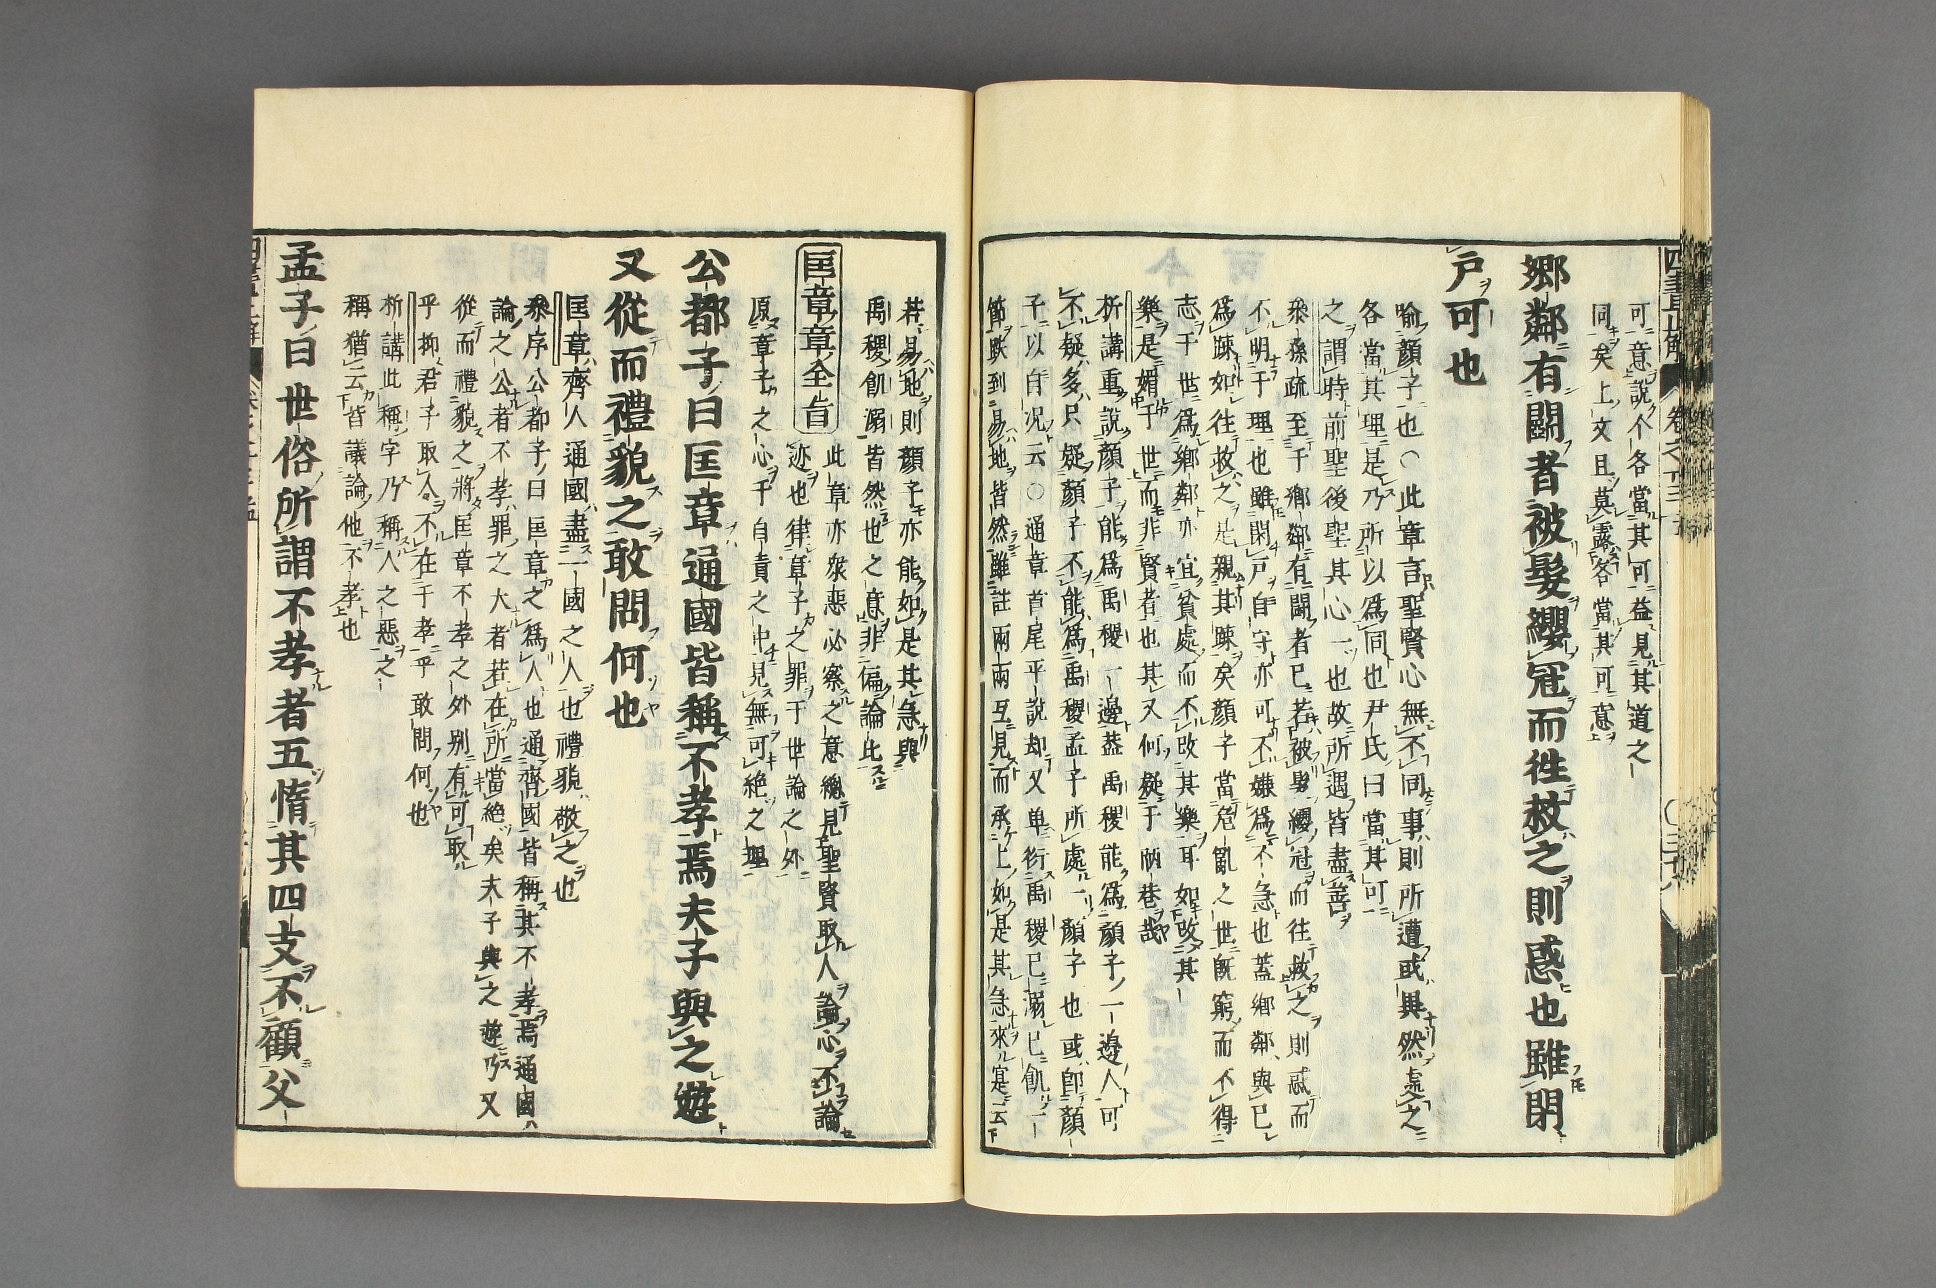 可意說个各當其可益見其道之
同矣上文且莫露各當其可意
鄉鄰有鬭者被髮纓冠而徃救之則惑也雖閉
戸可也
喻顔子也〇此章言聖賢心無不同事則所遭或異然處之
各當其理是乃所以爲同也尹氏曰當其可
之謂時前聖後聖其心一也故所遇皆盡善
衆孫疏至于鄉鄰有鬪者已若被髮纓冠而往救之則惑而
不明于理也雖閉戸自守亦可不嫌爲不急也蓋鄉鄰與已
爲踈如往救之是親其踈矣顔子當危亂之世旣窮而不得
志于世爲鄉鄰亦宜貧處而不改其樂耳如改其
樂是媚于世而非賢者也其又何疑于陋巷哉
析講重說顔子能爲禹稷一邊蓋禹稷能爲顔子一邊人可
不疑多只疑顔子不能爲禹稷孟子所處一顔子也或卽顔
子以自况云〇通章首尾平說却又单衍禹稷已溺已飢一
節跌到易地皆然雖註兩兩互見而承上如是其急來寔云
若易地則顔子亦能如是其急與
禹稷飢溺皆然也之意非偏論此
匡章章全旨
此章亦衆惡必察之意總見聖賢取人論心不論
迹也律章子之罪于世論之外
原章子之心于自責之中見無可絶之理
公都子曰匡章通國皆稱不孝焉夫子與之遊
又從而禮貌之敢問何也
匡章齊人通國盡一國之人也禮貌敬之也
衆序公都子曰匡章之爲人也通齊國皆稱其不孝焉通國
論之公者不孝罪之大者若在所當絶矣夫子與之遊乃又
從而禮貌之將匡章不孝之外别有可取
乎抑君子取人不在于孝乎敢問何也
析講此稱字乃稱人之惡之
稱猶云皆議論他不孝也
孟子曰世俗所謂不孝者五惰其四支不顧父